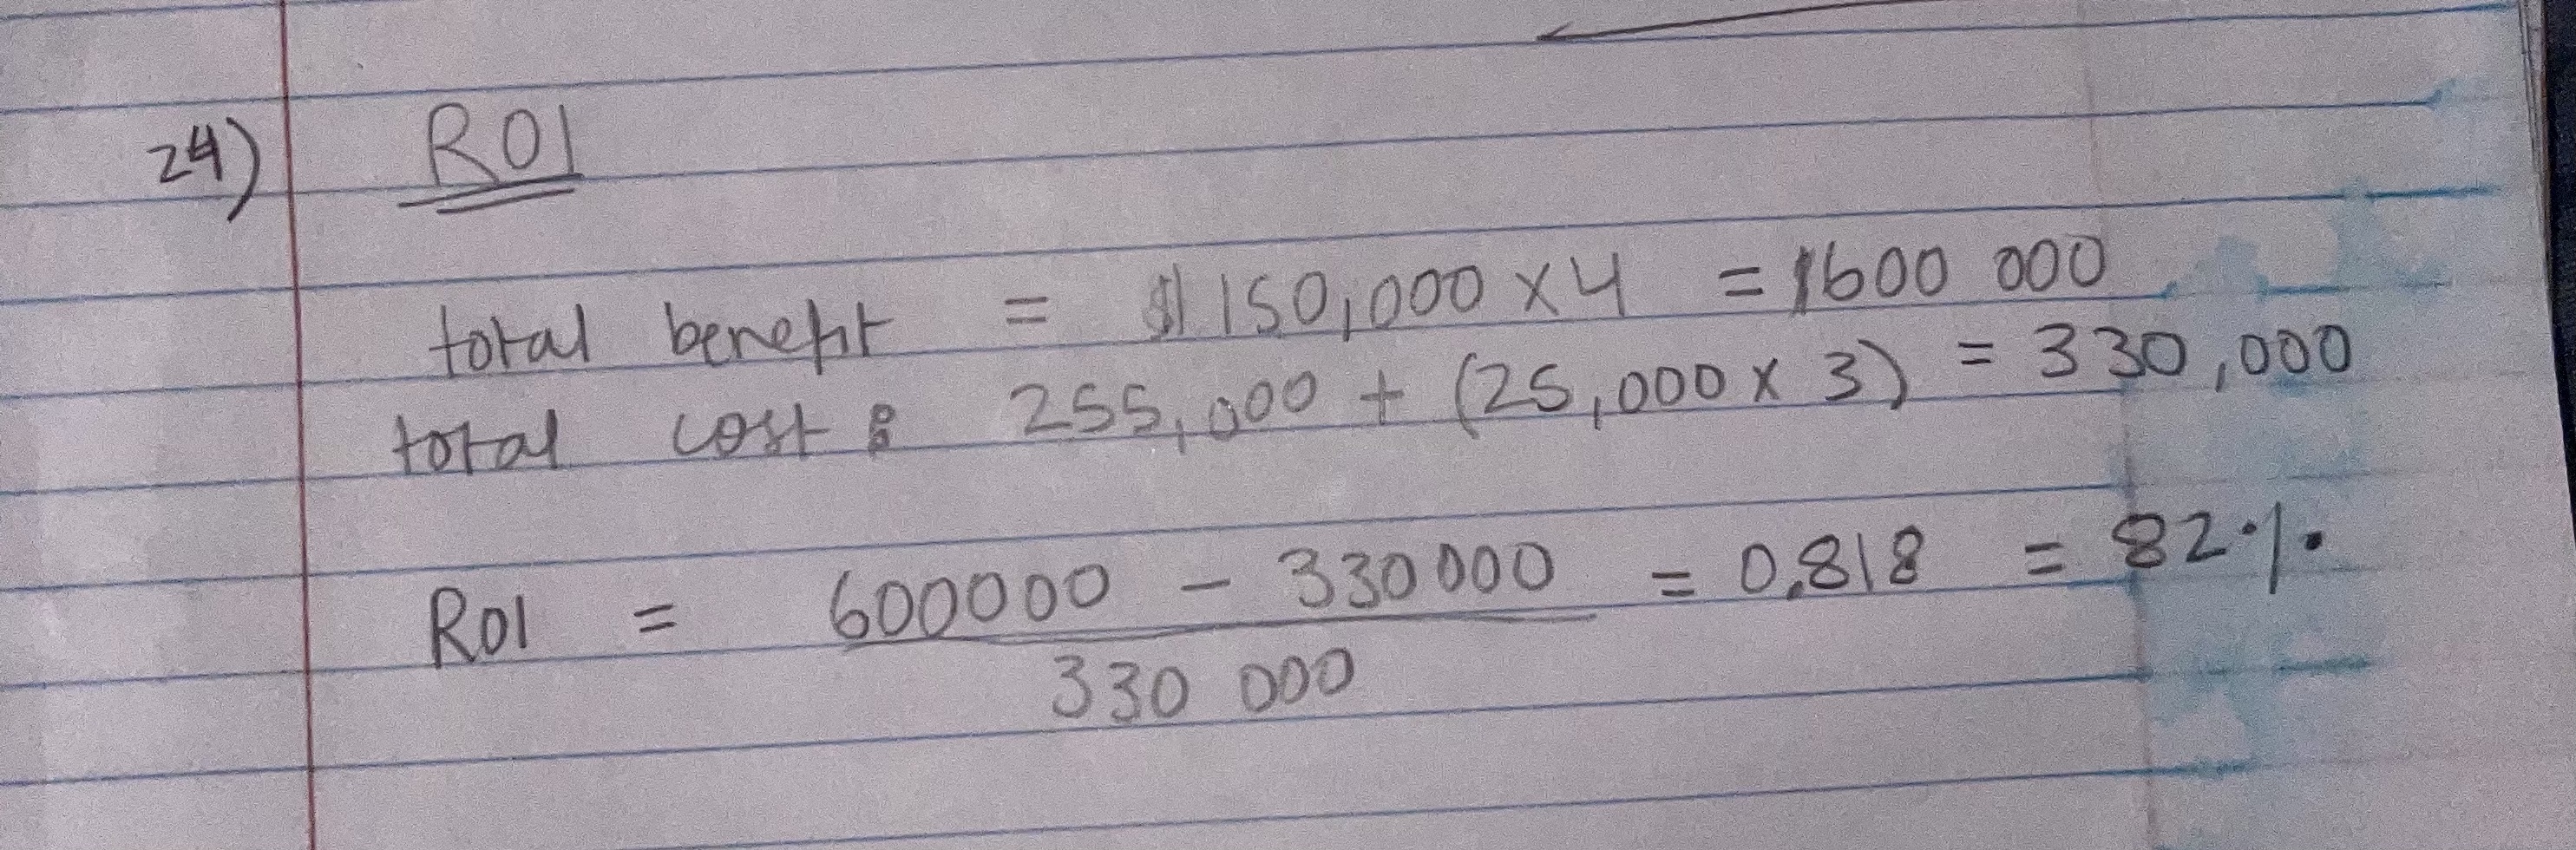 24) ROI
total benefit = $150,000 x 4 = $600 000
total cost : 255,000 + (25,000 x 3) = 330,000
ROI = 600000 - 330000 = 0.818 = 82%
330 000